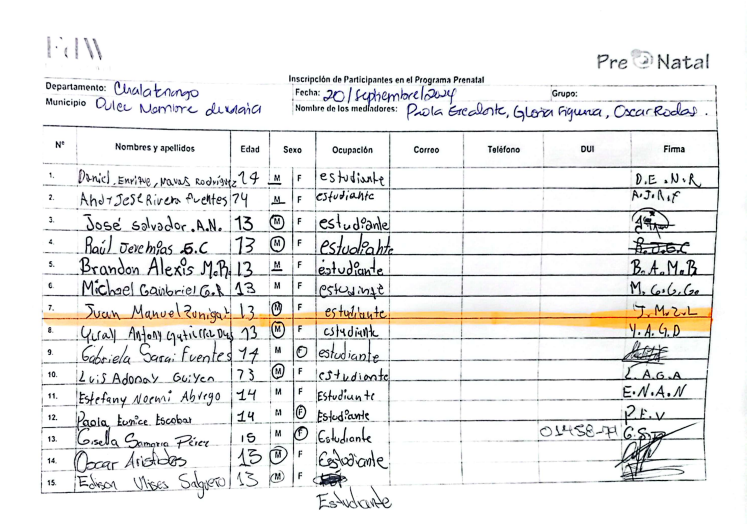 FdW
Pre Natal
Inscripción de Participantes en el Programa Prenatal
Departamento: Chalatenango
Fecha: 20/septiembre/2024 Grupo:
Municipio Dulce Nombre de maria
Nombre de los mediadores: Paola Escalante, Gloria Figueroa, Oscar Rodas.
Nº Nombres y apellidos Edad Sexo Ocupación Correo Teléfono DUI Firma
1. Daniel, Enrique, Navas Rodríguez 14 M F estudiante D.E.N.R
2. José Rivera fuentes 14 M F estudiante A.J.R.F
3. José Salvador.A.N. 13 M F estudiante
4. Raúl Jeremias G.C 13 M F estudiante
5. Brandon Alexis M.R. 13 M F estudiante B.A.M.R
6. Michael Gambriel G.R 13 M F estudiante M.G.G.G.
7. Juan Manuel Zuniga 13 M F estudiante J.M.Z.L
8. Antony Gutiérrez 13 M F estudiante Y.A.G.D
9. Gabriela Sarai Fuentes 14 M F estudiante
10. Luis Adonay Guiyen 13 M F estudiante L.A.G.A
11. Estefany Noemi Abrego 14 M F Estudiante E.N.A.N
12. Paola Eunice Escobar 14 M F Estudiante P.E.V
13. Gisella Samara Pérez 15 M F Estudiante 01458-71
14. Oscar Aristides 13 M F Estudiante
15. Edison Ulises Salguero 13 M F
Estudiante